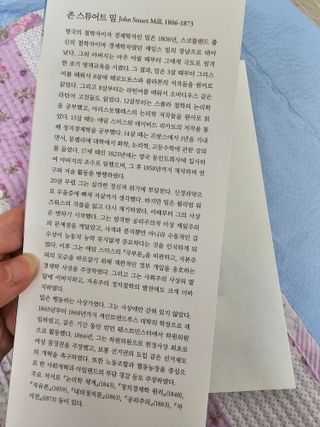 존 스튜어트 밀 John Stuart Mill, 1806-1873
영국의 철학자이자 경제학자인 밀은 1806년, 스코틀랜드 출
신의 철학자이며 경제학자였던 제임스 밀의 장남으로 태어
났다. 그의 아버지는 아주 어릴 때부터 그에게 극도로 엄격
한 조기 영재교육을 시켰다. 그 결과, 밀은 3살 때부터 그리스
어를 배워서 8살에 헤로도토스와 플라톤의 저작들을 원어로
읽었다. 그리고 8살부터는 라틴어를 배워서 오비디우스 같은
라틴어 고전들도 읽었다. 12살부터는 스콜라 철학의 논리학
을 공부했고, 아리스토텔레스의 논리학 저작들을 원어로 읽었
다. 13살 때는 애덤 스미스와 데이비드 리카도의 저작을 통
해 정치경제학을 공부했다. 14살 때는 프랑스에서 1년을 지내
면서, 몽펠리에 대학에서 화학, 논리학, 고등수학에 관한 강의
를 들었다. 17세 때인 1823년에는 영국 동인도회사에 입사하
여 아버지의 조수로 일했으며, 그 후 1858년까지 재직하며 연
구와 저술 활동을 병행하였다.
20살 무렵 그는 심각한 정신적 위기에 부딪친다. 신경쇠약으
로 우울증에 빠져 자살까지 생각했다. 하지만 밀은 윌리엄 워
즈워스의 작품을 읽고 다시 재기하였다. 이때부터 그의 사상
은 변하기 시작했다. 그는 엄격한 공리주의적 이상 체계주의
의 문제점을 깨달았고, 사색과 분석뿐만 아니라 수동적인 감
수성이 능동적 능력 못지않게 중요하다는 것을 인식하게 되
었다. 이후 그는 애덤 스미스의 『국부론』을 비판하고, 자본주
의의 모순을 바로잡기 위해 제한적인 정부 개입을 옹호하는
경제학 사상을 주장하였다. 그리고 그는 사회주의 사상의 발
달에 이바지하고, 자유주의 정치철학의 발전에도 크게 이바
지하였다.
밀은 행동하는 사상가였다. 그는 사상에만 갇혀 있지 않았다.
1865년부터 1868년까지 세인트앤드루스 대학의 학장으로 재
임하였고, 같은 기간 동안 런던 웨스트민스터에서 하원의원
으로 활동했다. 1866년, 그는 하원의원으로 헌정사상 최초로
여성 참정권을 주장했고, 보통 선거권의 도입 같은 선거제도
의 개혁을 촉구하였다. 또한 노동조합과 협동농장을 중심으
로 한 사회개혁과 아일랜드의 부담 경감 등도 주장하였다.
주요 저서로 『논리학 체계』(1843), 『정치경제학 원리』(1848),
『자유론』(1859), 『대의정치론』(1861), 『공리주의』(1863), 『자
서전』(1873) 등이 있다.